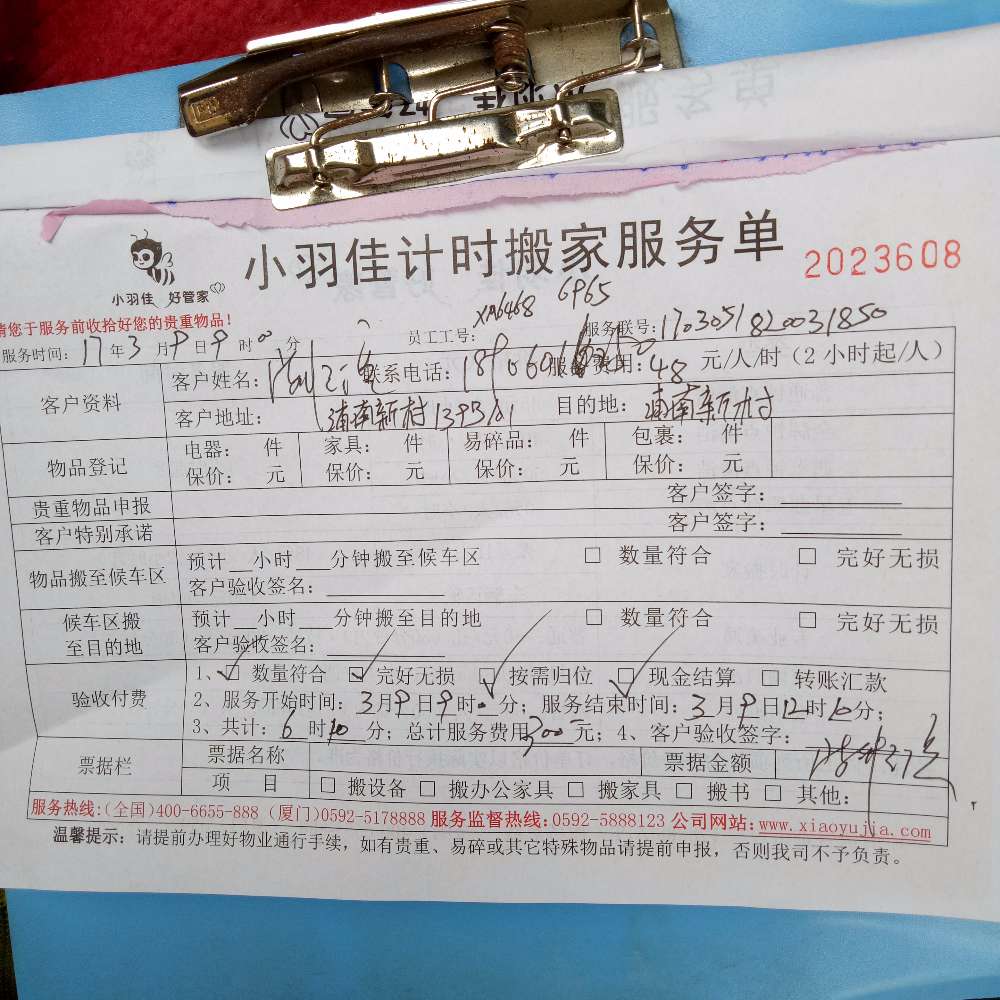 小羽佳计时搬家服务单
2023608
小羽佳 好管家
请您于服务前收拾好您的贵重物品!
员工工号: XM6468 6965
服务联号: 170305182003 1850
服务时间: 17年3月9日9时00分
客户资料
客户姓名:
联系电话:
服务费用: 48 元/人/时(2小时起/人)
客户地址: 浦南新村
目的地: 浦南新村
物品登记
电器: 件 家具: 件 易碎品: 件 包裹: 件
保价: 元 保价: 元 保价: 元 保价: 元
贵重物品申报 客户签字:
客户特别承诺 客户签字:
物品搬至候车区
预计 小时 分钟搬至候车区 □ 数量符合 □ 完好无损
客户验收签名:
候车区搬至目的地
预计 小时 分钟搬至目的地 □ 数量符合 □ 完好无损
客户验收签名:
验收付费
1、☑ 数量符合 ☑ 完好无损 ☑ 按需归位 ☑ 现金结算 □ 转账汇款
2、服务开始时间: 3月9日9时0分; 服务结束时间: 3月9日12时10分;
3、共计: 6时10分; 总计服务费用300元; 4、客户验收签字:
票据栏
票据名称 票据金额
项 目 □ 搬设备 □ 搬办公家具 □ 搬家具 □ 搬书 □ 其他:
服务热线:(全国)400-6655-888 (厦门)0592-5178888 服务监督热线:0592-5888123 公司网站:www.xiaoyujia.com
温馨提示: 请提前办理好物业通行手续,如有贵重、易碎或其它特殊物品请提前申报,否则我司不予负责。